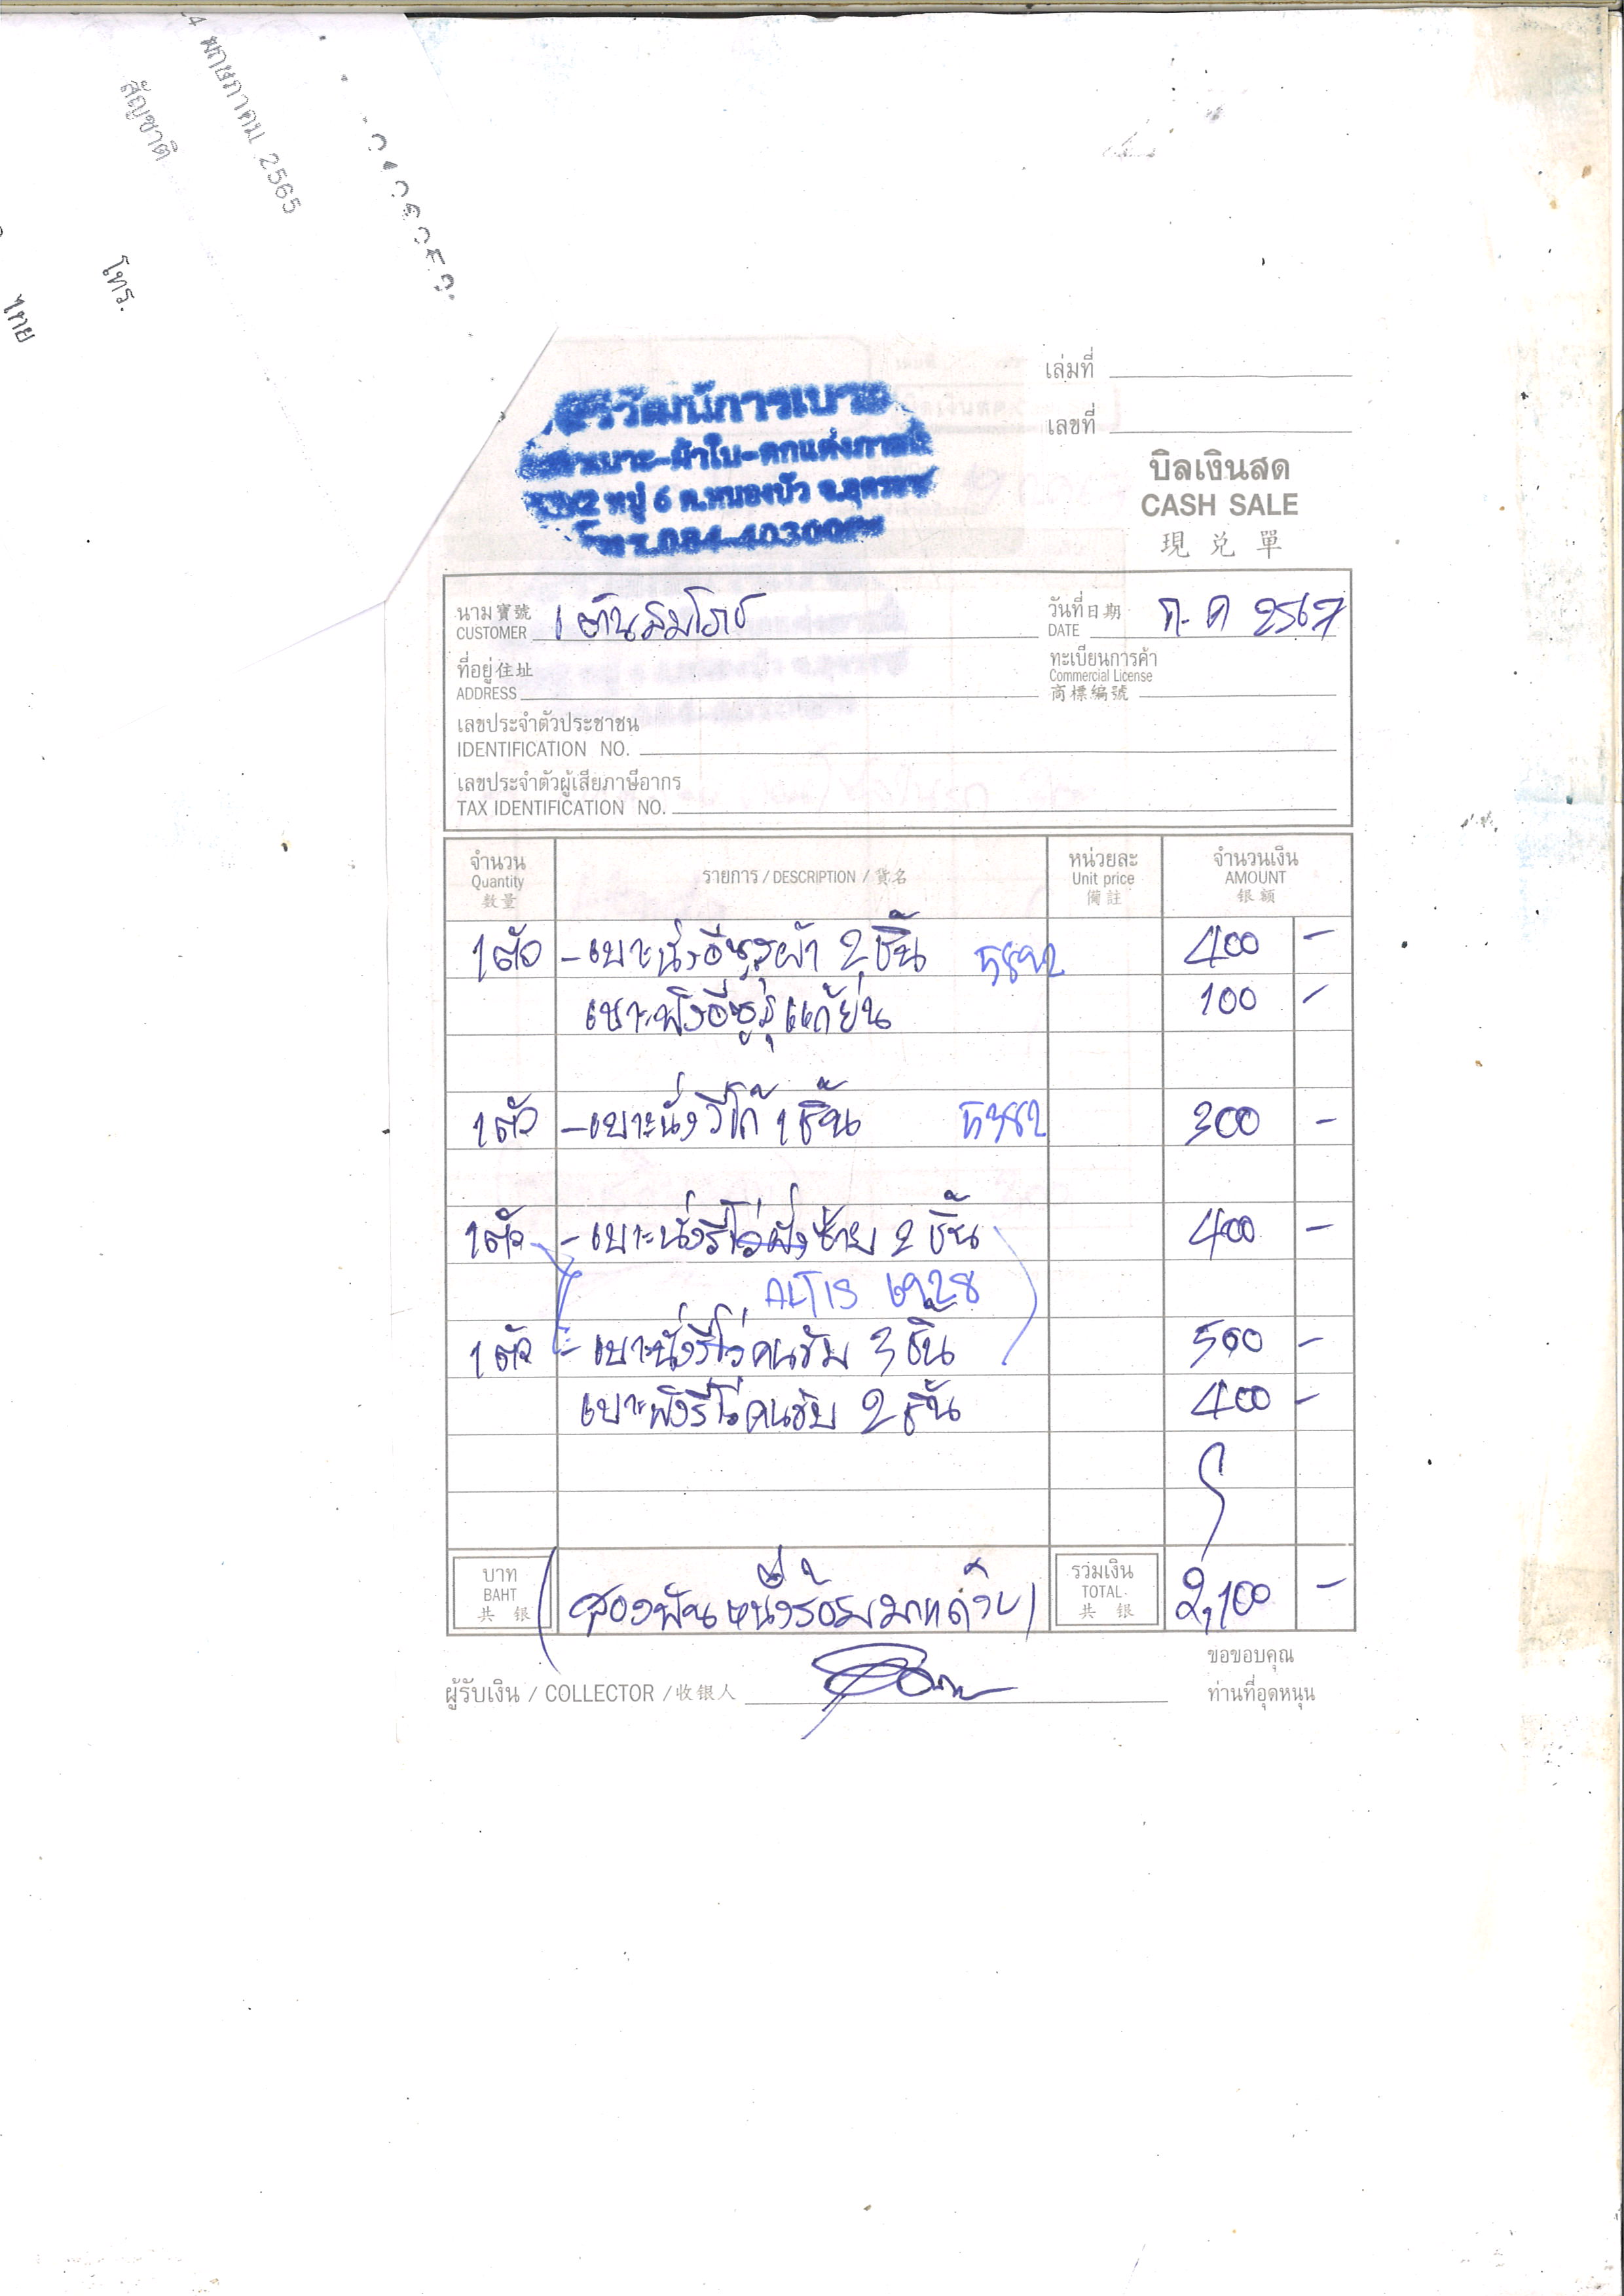 พฤษภาคม 2565
สัญชาติ
โทร.
ไทย
เล่มที่
เลขที่
บิลเงินสด
CASH SALE
現 兌 單
วัฒน์การเบาะ
เบาะ-ผ้าใบ-ตกแต่งภายใน
หมู่ 6 ต.หนองบัว จ.อุดรธานี
โทร.084-40300
นาม 寶號
CUSTOMER
วันที่ 日期
DATE ก.ค 2567
ที่อยู่ 住址
ADDRESS
ทะเบียนการค้า
Commercial License
商標編號
เลขประจำตัวประชาชน
IDENTIFICATION NO.
เลขประจำตัวผู้เสียภาษีอากร
TAX IDENTIFICATION NO.
จำนวน รายการ / DESCRIPTION / 貨名 หน่วยละ จำนวนเงิน
Quantity Unit price AMOUNT
數量 備註 银額
1 ตัว - เบาะนั่งอีซูซุผ้า 2 ชิ้น 400 -
เบาะพิงอีซูซุแก้ย่น 100 -
1 ตัว - เบาะนั่งวีโก้ 1 ชิ้น 300 -
1 ตัว - เบาะนั่งรีโว่ฝั่งซ้าย 2 ชิ้น 400 -
ALTIS 6928
1 ตัว - เบาะนั่งรีโว่คนขับ 3 ชิ้น 500 -
เบาะพิงรีโว่คนขับ 2 ชิ้น 400 -
บาท
BAHT
共 银
(สองพันหนึ่งร้อยบาทถ้วน)
รวมเงิน
TOTAL
共 银
2,100 -
ผู้รับเงิน / COLLECTOR / 收银人
ขอขอบคุณ
ท่านที่อุดหนุน